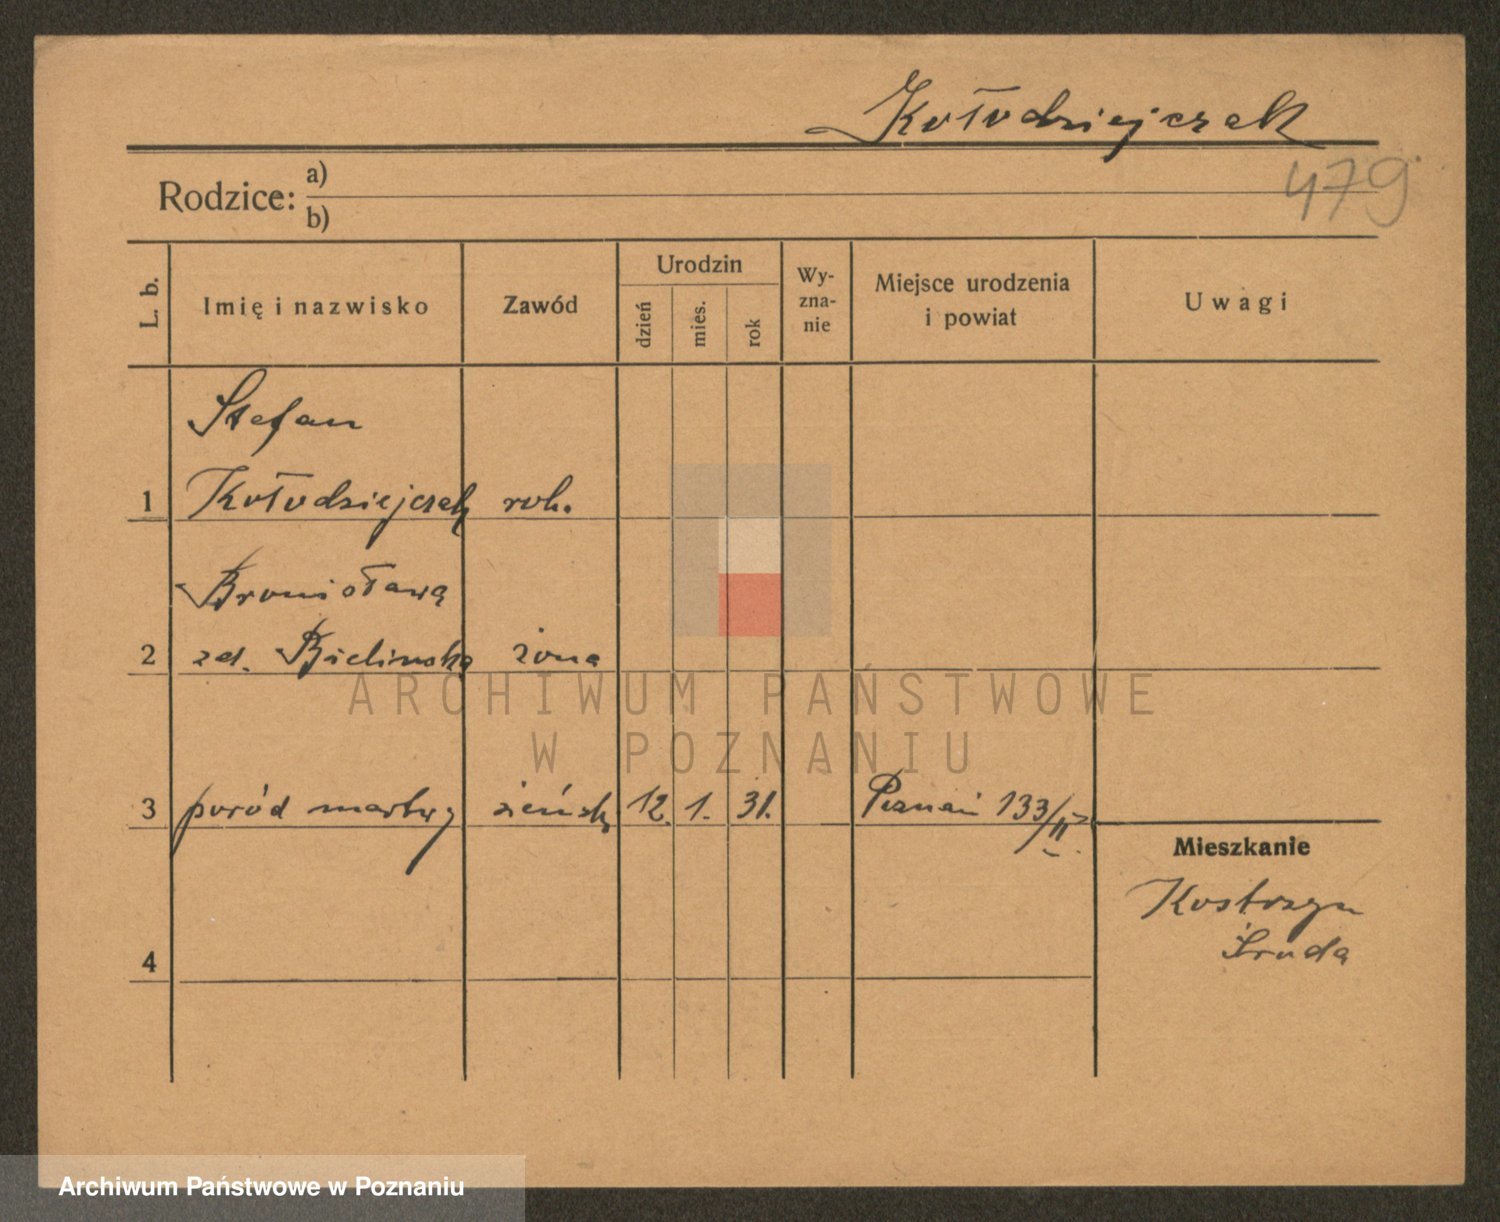 Kołodziejczak
479
Rodzice: a)
b)
L. b.
Imię i nazwisko
Zawód
Urodzin
dzień
mies.
rok
Wy-
zna-
nie
Miejsce urodzenia
i powiat
Uwagi
Stefan
1 Kołodziejczak rob.
Bronisława
2 zd. Bielinska żona
3 poród martwy żeński 12. 1. 31. Poznań 133/II.
Mieszkanie
Kostrzyn
Środa
4
ARCHIWUM PAŃSTWOWE
W POZNANIU
Archiwum Państwowe w Poznaniu